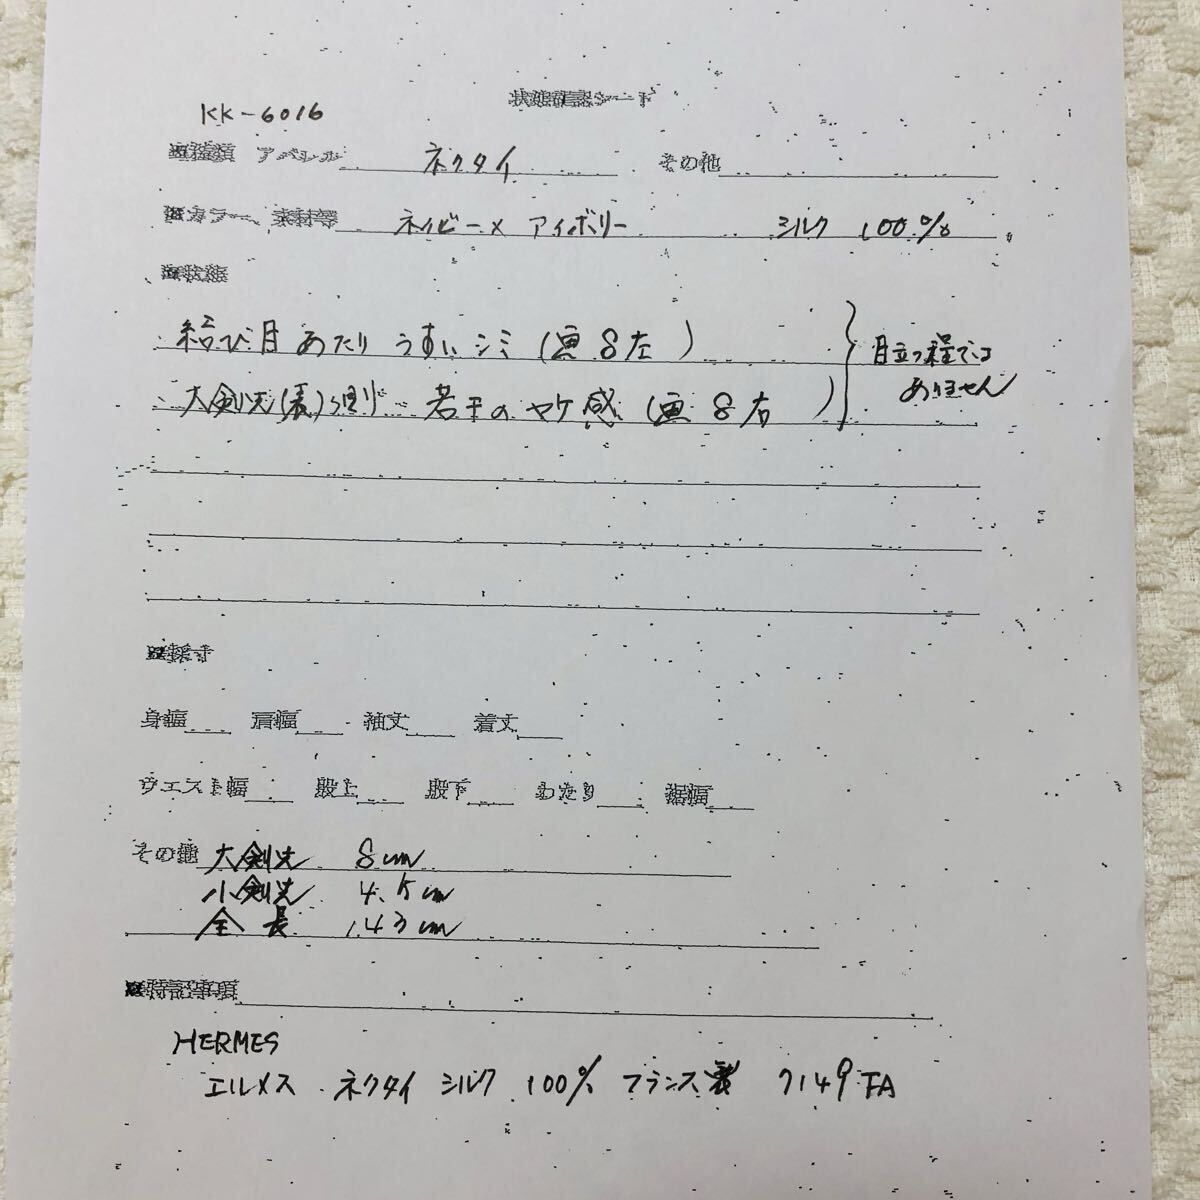 状態確認シート
KK-6016
■種類 アパレル ネクタイ その他
■カラー、素材等 ネイビー× アイボリー シルク 100%
■状態
結び目 あたり うすい シミ (画 8 左 )
大剣先(表)周り 若干の ヤケ感 (画 8 右 )
目立つ程では
ありません
■採寸
身幅 肩幅 袖丈 着丈
ウエスト幅 股上 股下 わたり 裾幅
その他 大剣先 8cm
小剣先 4.5cm
全長 143cm
■特記事項
HERMES
エルメス ネクタイ シルク 100% フランス製 7149 FA